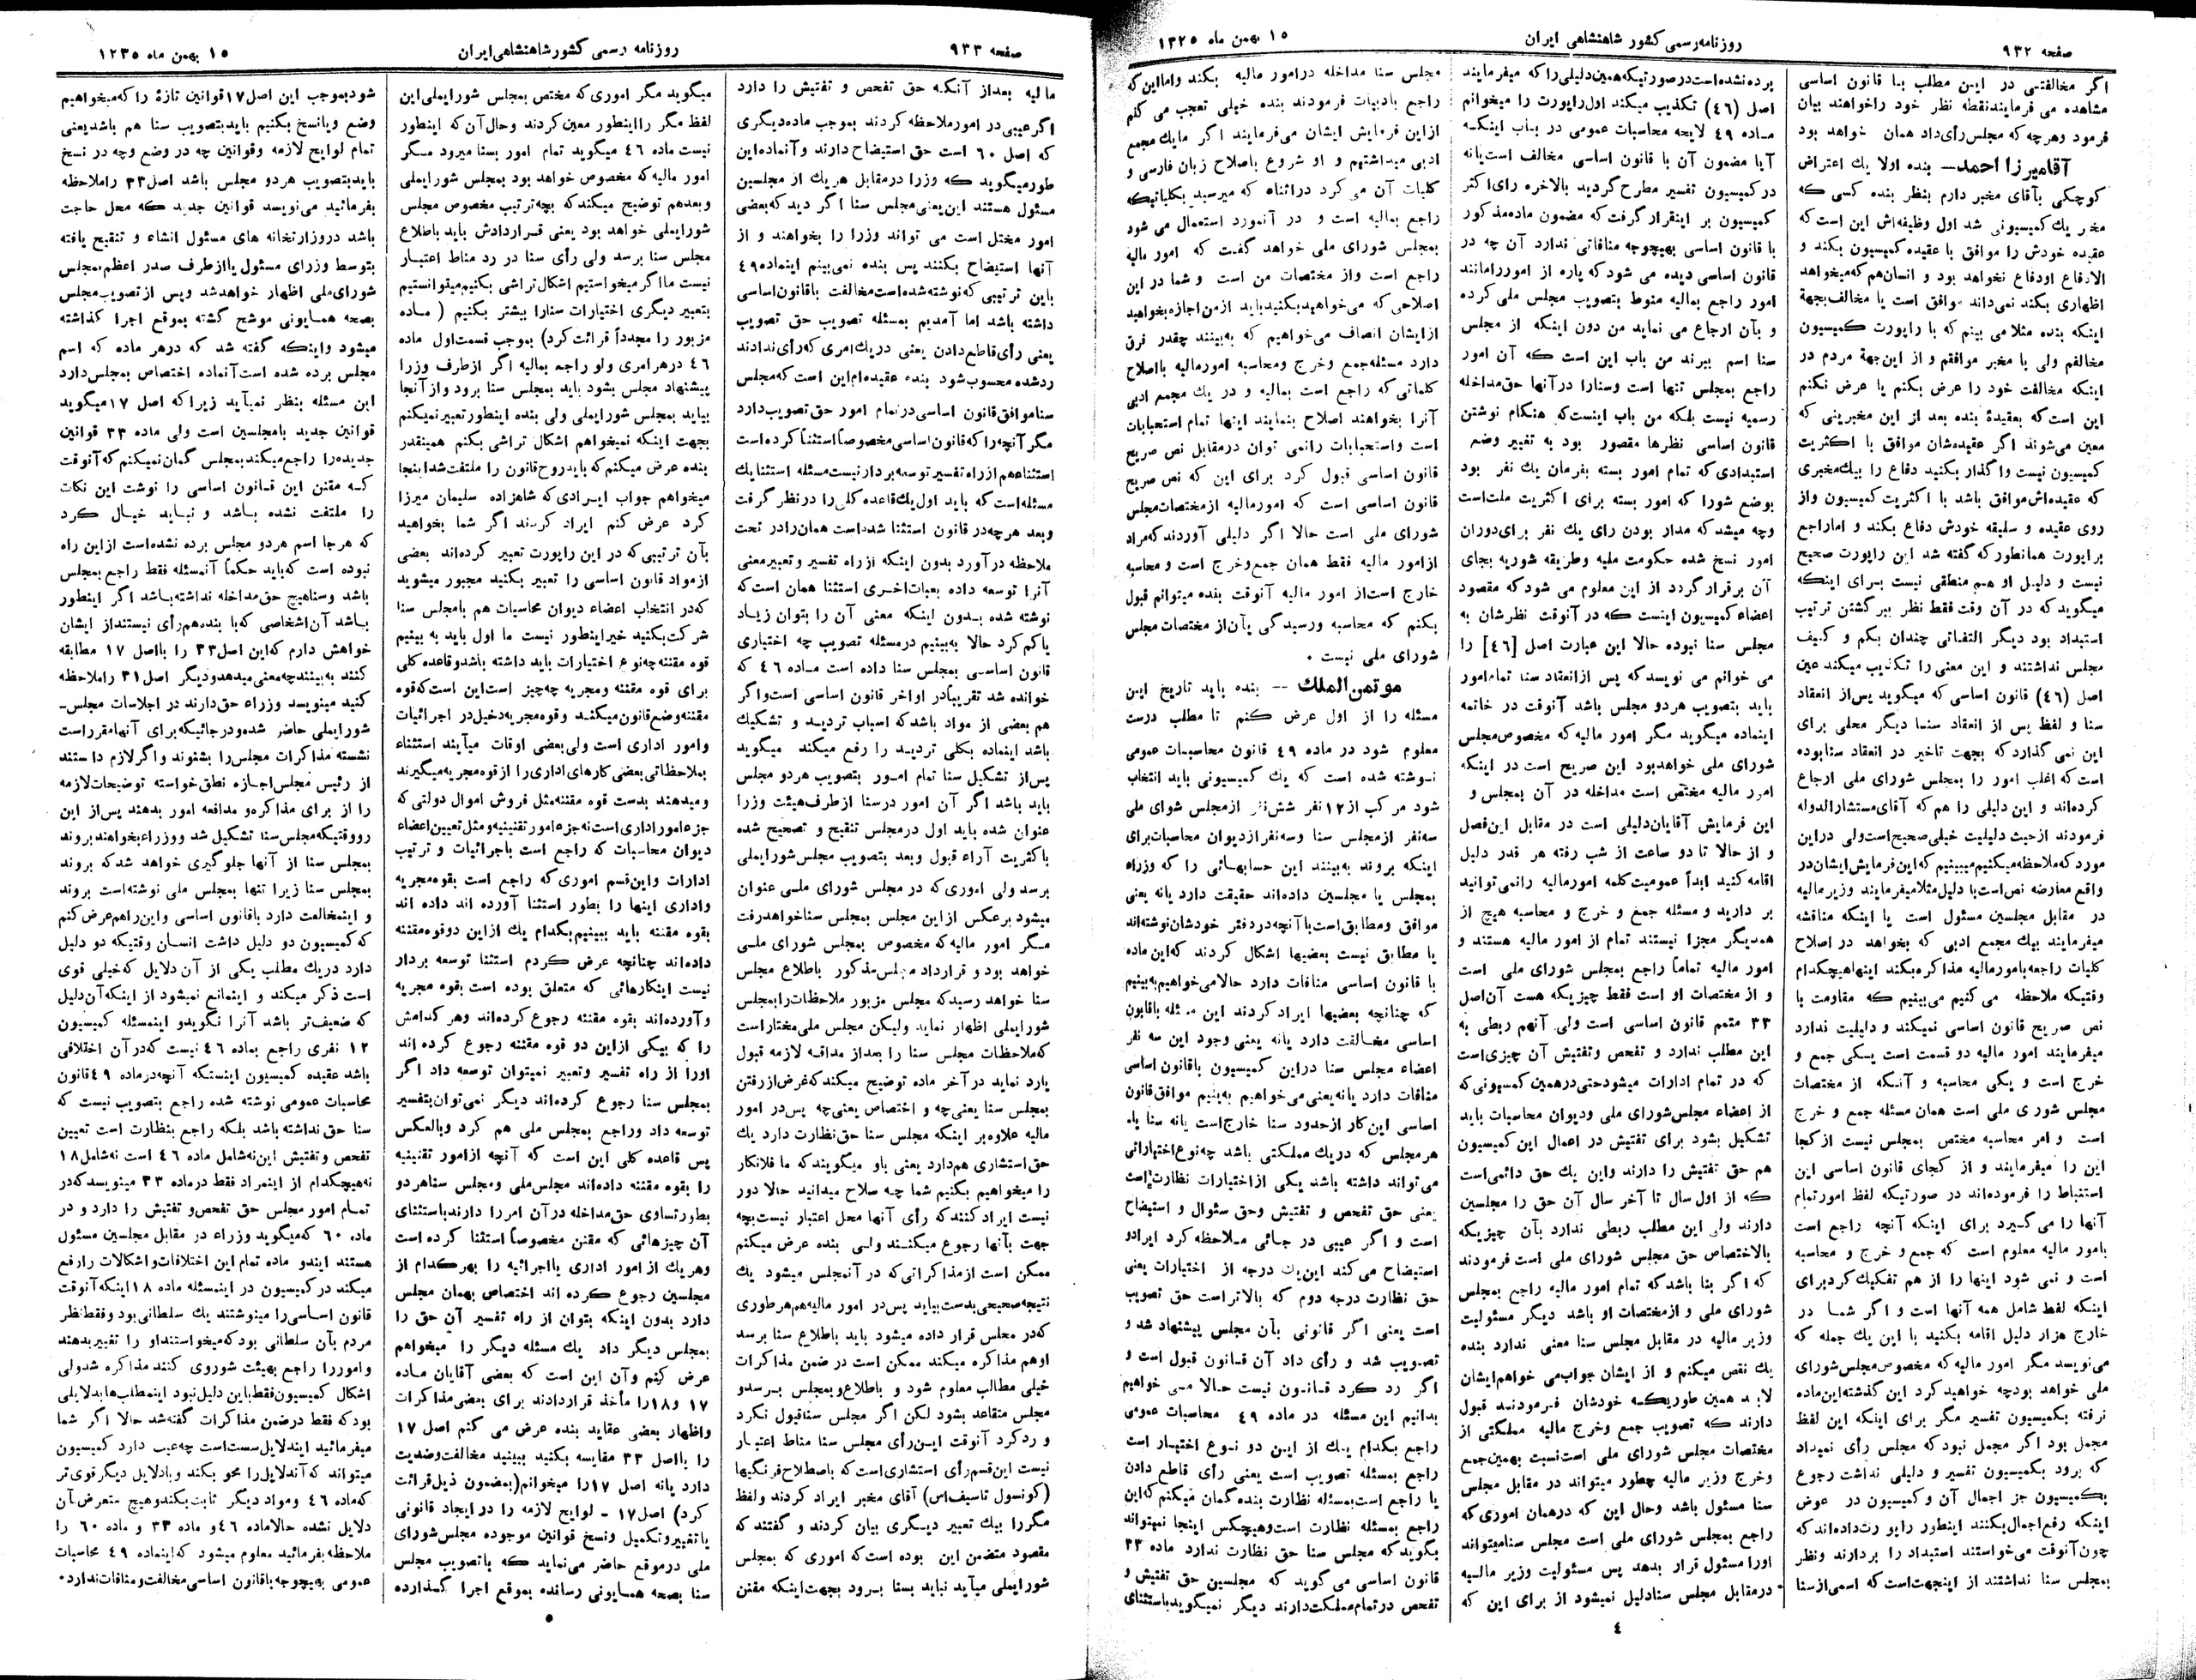 صفحه ۹۳۲
روزنامه رسمی کشور شاهنشاهی ایران
۱۵ بهمن ماه ۱۳۲۵
اگر مخالفتی در این مطلب با قانون اساسی
مشاهده می فرمایند نقطه نظر خود را خواهند بیان
فرمود و هر چه که مجلس رأی داد همان خواهد بود
آقامیرزا احمد— بنده اولا یك اعتراض
کوچکی بآقای مخبر دارم بنظر بنده کسی که
مخبر یك کمیسیونی شد اول وظیفه‌اش این است که
عقیده خودش را موافق با عقیده کمیسیون بکند و
الا دفاع او دفاع نخواهد بود و انسان هم که میخواهد
اظهاری بکند نمی‌داند موافق است یا مخالف بجهة
اینکه بنده مثلا می بینم که با راپورت کمیسیون
مخالفم ولی با مخبر موافقم و از این جهة مردم در
اینکه مخالفت خود را عرض بکنم یا عرض نکنم
این است که بعقیدهٔ بنده بعد از این مخبرینی که
معین می‌شوند اگر عقیده‌شان موافق با اکثریت
کمیسیون نیست واگذار بکنید دفاع را بیك مخبری
که عقیده‌اش موافق باشد با اکثریت کمیسیون و از
روی عقیده و سلیقه خودش دفاع بکند و اما راجع
براپورت همانطور که گفته شد این راپورت صحیح
نیست و دلیل او هم منطقی نیست برای اینکه
میگوید که در آن وقت فقط نظر ببر گشتن ترتیب
استبداد بود دیگر التفاتی چندان بکم و کیف
مجلس نداشتند و این معنی را تکذیب میکند عین
اصل (٤٦) قانون اساسی که میگوید پس از انعقاد
سنا و لفظ پس از انعقاد سنا دیگر محلی برای
این نمی گذارد که بجهت تاخیر در انعقاد سنا بوده
است که اغلب امور را بمجلس شورای ملی ارجاع
کرده‌اند و این دلیلی را هم که آقای مستشار الدوله
فرمودند از حیث دلیلیت خیلی صحیح است ولی در این
مورد که ملاحظه میکنیم میبینیم که این فرمایش ایشان در
واقع معارضه نص است با دلیل مثلا میفرمایند وزیر مالیه
در مقابل مجلسین مسئول است یا اینکه مناقشه
میفرمایند بیك مجمع ادبی که بخواهد در اصلاح
کلیات راجعه بامور مالیه مذاکره بکند اینها هیچکدام
وقتیکه ملاحظه می کنیم می‌بینیم که مقاومت با
نص صریح قانون اساسی نمیکند و دلیلیت ندارد
میفرمایند امور مالیه دو قسمت است یکی جمع و
خرج است و یکی محاسبه و آنکه از مختصات
مجلس شوری ملی است همان مسئله جمع و خرج
است و امر محاسبه مختص بمجلس نیست از کجا
این را میفرمایند و از کجای قانون اساسی این
استنباط را فرموده‌اند در صورتیکه لفظ امور تمام
آنها را می گیرد برای اینکه آنچه راجع است
بامور مالیه معلوم است که جمع و خرج و محاسبه
است و نمی شود اینها را از هم تفکیك کرد برای
اینکه لفظ شامل همه آنها است و اگر شما در
خارج هزار دلیل اقامه بکنید با این یك جمله که
می‌نویسد مگر امور مالیه که مخصوص مجلس شورای
ملی خواهد بود چه خواهید کرد این گذشته این ماده
نرفته بکمیسیون تفسیر مگر برای اینکه این لفظ
مجمل بود اگر مجمل نبود که مجلس رأی نمیداد
که برود بکمیسیون تفسیر و دلیلی نداشت رجوع
بکمیسیون جز اجمال آن و کمیسیون در عوض
اینکه رفع اجمال بکنند اینطور راپورت داده‌اند که
چون آنوقت می‌خواستند استبداد را بردارند و نظر
بمجلس سنا نداشتند از اینجهت است که اسمی از سنا
برده نشده است در صورتیکه همین دلیلی را که میفرمایند
اصل (٤٦) تکذیب میکند اول راپورت را میخوانم
ماده ٤٩ لایحه محاسبات عمومی در باب اینکه
آیا مضمون آن با قانون اساسی مخالف است یا نه
در کمیسیون تفسیر مطرح گردید بالاخره رای اکثر
کمیسیون بر اینقرار گرفت که مضمون ماده مذکور
با قانون اساسی بهیچوجه منافاتی ندارد آن چه در
قانون اساسی دیده می شود که پاره از امور را مانند
امور راجع بمالیه منوط بتصویب مجلس ملی کرده
و بآن ارجاع می نماید من دون اینکه از مجلس
سنا اسم ببرند من باب این است که آن امور
راجع بمجلس تنها است و سنا را در آنها حق مداخله
رسمیه نیست بلکه من باب اینست که هنگام نوشتن
قانون اساسی نظرها مقصور بود به تغییر وضع
استبدادی که تمام امور بسته بفرمان یك نفر بود
بوضع شورا که امور بسته برای اکثریت ملت است
وچه میشد که مدار بودن رای یك نفر برای دوران
امور نسخ شده حکومت ملیه و طریقه شوریه بجای
آن برقرار گردد از این معلوم می شود که مقصود
اعضاء کمیسیون اینست که در آنوقت نظرشان به
مجلس سنا نبوده حالا این عبارت اصل [٤٦] را
می خوانم می نویسد که پس از انعقاد سنا تمام امور
باید بتصویب هر دو مجلس باشد آنوقت در خاتمه
اینماده میگوید مگر امور مالیه که مخصوص مجلس
شورای ملی خواهد بود این صریح است در اینکه
امور مالیه مختص است مداخله در آن بمجلس و
این فرمایش آقایان دلیلی است در مقابل این فصل
و از حالا تا دو ساعت از شب رفته هر قدر دلیل
اقامه کنید ابداً عمومیت کلمه امور مالیه را نمی توانید
بر دارید و مسئله جمع و خرج و محاسبه هیچ از
همدیگر مجزا نیستند تمام از امور مالیه هستند و
امور مالیه تماماً راجع بمجلس شورای ملی است
و از مختصات او است فقط چیزیکه هست آن اصل
۳۳ متمم قانون اساسی است ولی آنهم ربطی به
این مطلب ندارد و تفحص و تفتیش آن چیزی است
که در تمام ادارات میشود حتی در همین کمسیونی که
از اعضاء مجلس شورای ملی و دیوان محاسبات باید
تشکیل بشود برای تفتیش در اعمال این کمیسیون
هم حق تفتیش را دارند و این یك حق دائمی است
که از اول سال تا آخر سال آن حق را مجلسین
دارند ولی این مطلب ربطی ندارد بآن چیزیکه
بالاختصاص حق مجلس شورای ملی است فرمودند
که اگر بنا باشد که تمام امور مالیه راجع بمجلس
شورای ملی و از مختصات او باشد دیگر مسئولیت
وزیر مالیه در مقابل مجلس سنا معنی ندارد بنده
یك نقص میکنم و از ایشان جواب می خواهم ایشان
لابد همین طوریکه خودشان فرمودند قبول
دارند که تصویب جمع و خرج مالیه مملکتی از
مختصات مجلس شورای ملی است نسبت بهمین جمع
و خرج وزیر مالیه چطور میتواند در مقابل مجلس
سنا مسئول باشد و حال این که در همان اموری که
راجع بمجلس شورای ملی است مجلس سنا میتواند
او را مسئول قرار بدهد پس مسئولیت وزیر مالیه
در مقابل مجلس سنا دلیل نمیشود از برای این که
مجلس سنا مداخله در امور مالیه بکند و اما این که
راجع بادبیات فرمودند بنده خیلی تعجب می کنم
از این فرمایش ایشان می فرمایند اگر ما یك مجمع
ادبی میداشتیم و او شروع باصلاح زبان فارسی و
کلیات آن می کرد در اثناء که میرسید بکلیاتیکه
راجع بمالیه است و در آنمورد استعمال می شود
بمجلس شورای ملی خواهد گفت که امور مالیه
راجع است و از مختصات من است و شما در این
اصلاحی که می خواهید بکنید باید از من اجازه بخواهید
از ایشان انصاف می‌خواهیم که به‌بینند چقدر فرق
دارد مسئله جمع و خرج و محاسبه امور مالیه با اصلاح
کلماتی که راجع است بمالیه و در یك مجمع ادبی
آنرا بخواهند اصلاح بنمایند اینها تمام استحبابات
است و استحبابات را نمی توان در مقابل نص صریح
قانون اساسی قبول کرد برای این که نص صریح
قانون اساسی است که امور مالیه از مختصات مجلس
شورای ملی است حالا اگر دلیلی آوردند که مراد
از امور مالیه فقط همان جمع و خرج است و محاسبه
خارج است از امور مالیه آنوقت بنده میتوانم قبول
بکنم که محاسبه ورسیدگی بآن از مختصات مجلس
شورای ملی نیست .
موتمن الملك — بنده باید تاریخ این
مسئله را از اول عرض کنم تا مطلب درست
معلوم شود در ماده ٤٩ قانون محاسبات عمومی
نوشته شده است که یك کمیسیونی باید انتخاب
شود مرکب از ۱۲ نفر شش نفر از مجلس شورای ملی
سه نفر از مجلس سنا و سه نفر از دیوان محاسبات برای
اینکه بروند به‌بینند این حسابهائی را که وزراء
بمجلس یا مجلسین داده‌اند حقیقت دارد یا نه یعنی
موافق و مطابق است با آنچه در دفتر خودشان نوشته‌اند
یا مطابق نیست بعضیها اشکال کردند که این ماده
با قانون اساسی منافات دارد حالا می خواهیم به‌بینیم
که چنانچه بعضیها ایراد کردند این مسئله با قانون
اساسی مخالفت دارد یا نه یعنی وجود این سه نفر
اعضاء مجلس سنا در این کمیسیون با قانون اساسی
منافات دارد یا نه یعنی می‌خواهیم به‌بینیم موافق قانون
اساسی این کار از حدود سنا خارج است یا نه سنا یا
هر مجلس که در یك مملکتی باشد چه نوع اختیاراتی
می‌تواند داشته باشد یکی از اختیارات نظارت است
یعنی حق تفحص و تفتیش و حق سئوال و استیضاح
است و اگر عیبی در جائی ملاحظه کرد ایراد و
استیضاح می‌کند این یك درجه از اختیارات یعنی
حق نظارت درجه دوم که بالاتر است حق تصویب
است یعنی اگر قانونی بآن مجلس پیشنهاد شد و
تصویب شد و رأی داد آن قانون قبول است و
اگر رد کرد قانون نیست حالا می خواهیم
بدانیم این مسئله در ماده ٤٩ محاسبات عمومی
راجع بکدام یك از این دو نوع اختیار است
راجع بمسئله تصویب است یعنی رأی قاطع دادن
یا راجع است بمسئله نظارت بنده گمان میکنم که این
راجع بمسئله نظارت است و هیچکس اینجا نمیتواند
بگوید که مجلس سنا حق نظارت ندارد ماده ۳۳
قانون اساسی می گوید که مجلسین حق تفتیش و
تفحص در تمام مملکت دارند دیگر نمیگوید باستثنای
٤
صفحه ۹۳۳
روزنامه رسمی کشور شاهنشاهی ایران
۱۵ بهمن ماه ۱۲۳۵
مالیه بعد از آنکه حق تفحص و تفتیش را دارد
اگر عیبی در امور ملاحظه کردند بموجب ماده دیگری
که اصل ٦۰ است حق استیضاح دارند و آنماده این
طور میگوید که وزرا در مقابل هر یك از مجلسین
مسئول هستند این یعنی مجلس سنا اگر دید که بعضی
امور مختل است می تواند وزرا را بخواهند و از
آنها استیضاح بکنند پس بنده نمی بینم اینماده ٤٩
باین ترتیبی که نوشته شده است مخالفت با قانون اساسی
داشته باشد اما آمدیم بمسئله تصویب حق تصویب
یعنی رأی قاطع دادن یعنی در یك امری که رأی ندادند
رد شده محسوب شود بنده عقیده‌ام این است که مجلس
سنا موافق قانون اساسی در تمام امور حق تصویب دارد
مگر آنچه را که قانون اساسی مخصوصاً استثنا کرده است
استثنا هم از راه تفسیر توسعه بردار نیست مسئله استثنا یك
مسئله است که باید اول یك قاعده کلی را در نظر گرفت
و بعد هر چه در قانون استثنا شده است همان را در تحت
ملاحظه در آورد بدون اینکه از راه تفسیر و تعبیر معنی
آنرا توسعه داده بعبات اخری استثنا همان است که
نوشته شده بدون اینکه معنی آن را بتوان زیاد
یا کم کرد حالا به‌بینیم در مسئله تصویب چه اختیاری
قانون اساسی بمجلس سنا داده است ماده ٤٦ که
خوانده شد تقریباً در اواخر قانون اساسی است و اگر
هم بعضی از مواد باشد که اسباب تردید و تشکیك
باشد اینماده بکلی تردید را رفع میکند میگوید
پس از تشکیل سنا تمام امور بتصویب هر دو مجلس
باید باشد اگر آن امور در سنا از طرف هیئت وزرا
عنوان شده باید اول در مجلس تنقیح و تصحیح شده
باکثریت آراء قبول و بعد بتصویب مجلس شورایملی
برسد ولی اموری که در مجلس شورای ملی عنوان
میشود برعکس از این مجلس بمجلس سنا خواهد رفت
مگر امور مالیه که مخصوص بمجلس شورای ملی
خواهد بود و قرارداد مجلس مذکور باطلاع مجلس
سنا خواهد رسید که مجلس مزبور ملاحظات را بمجلس
شورایملی اظهار نماید ولیکن مجلس ملی مختار است
که ملاحظات مجلس سنا را بعد از مداقه لازمه قبول
یا رد نماید در آخر ماده توضیح میکند که غرض از رفتن
بمجلس سنا یعنی چه و اختصاص یعنی چه پس در امور
مالیه علاوه بر اینکه مجلس سنا حق نظارت دارد یك
حق استشاری هم دارد یعنی باو میگویند که ما فلانکار
را میخواهیم بکنیم شما چه صلاح میدانید حالا دور
نیست ایراد کنند که رأی آنها محل اعتبار نیست بچه
جهت بآنها رجوع میکنند ولی بنده عرض میکنم
ممکن است از مذاکراتی که در آنمجلس میشود یك
نتیجه صحیحی بدست بیاید پس در امور مالیه هم هر طوری
که در مجلس قرار داده میشود باید باطلاع سنا برسد
او هم مذاکره میکند ممکن است در ضمن مذاکرات
خیلی مطالب معلوم شود و باطلاع و بمجلس برسد و
مجلس متقاعد بشود لکن اگر مجلس سنا قبول نکرد
و رد کرد آنوقت این رأی مجلس سنا مناط اعتبار
نیست این قسم رأی استشاری است که باصطلاح فرنگیها
(کونسول تاسیف‌اس) آقای مخبر ایراد کردند و لفظ
مگر را بیك تعبیر دیگری بیان کردند و گفتند که
مقصود متضمن این بوده است که اموری که بمجلس
شورایملی میآید نباید بسنا برود بجهت اینکه مقنن
میگوید مگر اموری که مختص بمجلس شورایملی این
لفظ مگر را اینطور معین کردند و حال آن که اینطور
نیست ماده ٤٦ میگوید تمام امور بسنا میرود مگر
امور مالیه که مخصوص خواهد بود بمجلس شورایملی
و بعد هم توضیح میکند که بچه ترتیب مخصوص مجلس
شورایملی خواهد بود یعنی قراردادش باید باطلاع
مجلس سنا برسد ولی رأی سنا در رد مناط اعتبار
نیست ما اگر میخواستیم اشکال تراشی بکنیم میتوانستیم
بتعبیر دیگری اختیارات سنا را بیشتر بکنیم ( ماده
مزبور را مجدداً قرائت کرد) بموجب قسمت اول ماده
٤٦ در هر امری ولو راجع بمالیه اگر از طرف وزرا
پیشنهاد مجلس بشود باید بمجلس سنا برود و از آنجا
بیاید بمجلس شورایملی ولی بنده اینطور تعبیر نمیکنم
بجهت اینکه نمیخواهم اشکال تراشی بکنم همینقدر
بنده عرض میکنم که باید روح قانون را ملتفت شد اینجا
میخواهم جواب ایرادی که شاهزاده سلیمان میرزا
کرد عرض کنم ایراد کردند اگر شما بخواهید
بآن ترتیبی که در این راپورت تعبیر کرده‌اند بعضی
از مواد قانون اساسی را تعبیر بکنید مجبور میشوید
که در انتخاب اعضاء دیوان محاسبات هم با مجلس سنا
شرکت بکنید خیر اینطور نیست ما اول باید به بینیم
قوه مقننه چه نوع اختیارات باید داشته باشد و قاعده کلی
برای قوه مقننه و مجریه چه چیز است این است که قوه
مقننه وضع قانون میکند و قوه مجریه دخیل در اجرائیات
و امور اداری است ولی بعضی اوقات میآیند استثناء
بملاحظاتی بعضی کارهای اداری را از قوه مجریه میگیرند
و میدهند بدست قوه مقننه مثل فروش اموال دولتی که
جزء امور اداری است نه جزء امور تقنینیه و مثل تعیین اعضاء
دیوان محاسبات که راجع است باجرائیات و ترتیب
ادارات و این قسم اموری که راجع است بقوه مجریه
و اداری اینها را بطور استثنا آورده اند داده اند
بقوه مقننه باید ببینیم بکدام یك از این دو قوه مقننه
داده‌اند چنانچه عرض کردم استثنا توسعه بردار
نیست اینکارهائی که متعلق بوده است بقوه مجریه
و آورده‌اند بقوه مقننه رجوع کرده‌اند و هر کدامش
را که بیکی از این دو قوه مقننه رجوع کرده اند
اورا از راه تفسیر و تعبیر نمیتوان توسعه داد اگر
بمجلس سنا رجوع کرده‌اند دیگر نمی توان بتفسیر
توسعه داد و راجع بمجلس ملی هم کرد و بالعکس
پس قاعده کلی این است که آنچه از امور تقنینیه
را بقوه مقننه داده‌اند مجلس ملی و مجلس سنا هر دو
بطور تساوی حق مداخله در آن امر را دارند باستثنای
آن چیزهائی که مقنن مخصوصاً استثنا کرده است
و هر یك از امور اداری یا اجرائیه را بهر کدام از
مجلسین رجوع کرده اند اختصاص بهمان مجلس
دارد بدون اینکه بتوان از راه تفسیر آن حق را
بمجلس دیگر داد یك مسئله دیگر را میخواهم
عرض کنم و آن این است که بعضی آقایان ماده
۱۷ و ۱۸ را مأخذ قرار دادند برای بعضی مذاکرات
و اظهار بعضی عقاید بنده عرض می کنم اصل ۱۷
را با اصل ۳۳ مقایسه بکنید ببینید مخالفت و ضدیت
دارد یا نه اصل ۱۷ را میخوانم (بمضمون ذیل قرائت
کرد) اصل ۱۷ ـ لوایح لازمه را در ایجاد قانونی
یا تغییر و تکمیل و نسخ قوانین موجوده مجلس شورای
ملی در موقع حاضر می‌نماید که با تصویب مجلس
سنا بصحه همایونی رسانده بموقع اجرا گذارده
شود بموجب این اصل ۱۷ قوانین تازهٔ را که میخواهیم
وضع و یا نسخ بکنیم باید بتصویب سنا هم باشد یعنی
تمام لوایح لازمه و قوانین چه در وضع و چه در نسخ
باید بتصویب هر دو مجلس باشد اصل ۳۳ را ملاحظه
بفرمائید می‌نویسد قوانین جدید که محل حاجت
باشد در وزارتخانه های مسئول انشاء و تنقیح یافته
بتوسط وزرای مسئول یا از طرف صدر اعظم بمجلس
شورای ملی اظهار خواهد شد و پس از تصویب مجلس
بصحه همایونی موشح گشته بموقع اجرا گذاشته
میشود و اینکه گفته شد که در هر ماده که اسم
مجلس برده شده است آنماده اختصاص بمجلس دارد
این مسئله بنظر نمیآید زیرا که اصل ۱۷ میگوید
قوانین جدید با مجلسین است ولی ماده ۳۳ قوانین
جدیده را راجع میکند بمجلس گمان نمیکنم که آنوقت
که مقنن این قانون اساسی را نوشت این نکات
را ملتفت نشده باشد و نباید خیال کرد
که هر جا اسم هر دو مجلس برده نشده است از این راه
نبوده است که باید حکماً آنمسئله فقط راجع بمجلس
باشد و سنا هیچ حق مداخله نداشته باشد اگر اینطور
باشد آن اشخاصی که با بنده هم رأی نیستند از ایشان
خواهش دارم که این اصل ۳۳ را با اصل ۱۷ مطابقه
کنند به بینند چه معنی میدهد و دیگر اصل ۳۱ را ملاحظه
کنید مینویسد وزراء حق دارند در اجلاسات مجلس
شورایملی حاضر شده و در جائیکه برای آنها مقرر است
نشسته مذاکرات مجلس را بشنوند و اگر لازم دانستند
از رئیس مجلس اجازه نطق خواسته توضیحات لازمه
را از برای مذاکره و مدافعه امور بدهند پس از این
رو وقتیکه مجلس سنا تشکیل شد و وزراء بخواهند بروند
بمجلس سنا از آنها جلوگیری خواهد شد که بروند
بمجلس سنا زیرا تنها بمجلس ملی نوشته است بروند
و اینمخالفت دارد با قانون اساسی و این را هم عرض کنم
که کمیسیون دو دلیل داشت انسان وقتیکه دو دلیل
دارد در یك مطلب یکی از آن دلایل که خیلی قوی
است ذکر میکند و اینمانع نمیشود از اینکه آن دلیل
که ضعیف‌تر باشد آنرا نگوید و اینمسئله کمیسیون
۱۲ نفری راجع بماده ٤٦ نیست که در آن اختلافی
باشد عقیده کمیسیون اینستکه آنچه در ماده ٤٩ قانون
محاسبات عمومی نوشته شده راجع بتصویب نیست که
سنا حق نداشته باشد بلکه راجع بنظارت است تعیین
تفحص و تفتیش این نه شامل ماده ٤٦ است نه شامل ۱۸
نه هیچکدام از اینمراد فقط در ماده ۳۳ مینویسد که در
تمام امور مجلس حق تفحص و تفتیش را دارد و در
ماده ٦۰ که میگوید وزراء در مقابل مجلسین مسئول
هستند ایندو ماده تمام این اختلافات و اشکالات را رفع
میکند در کمیسیون در اینمسئله ماده ۱۸ اینکه آنوقت
قانون اساسی را مینوشتند یك سلطانی بود و فقط نظر
مردم بآن سلطانی بود که میخواستند او را تغییر بدهند
و امور را راجع بهیئت شوروی کنند مذاکره شد ولی
اشکال کمیسیون فقط باین دلیل نبود اینمطلب ها بدلایلی
بود که فقط در ضمن مذاکرات گفته شد حالا اگر شما
میفرمائید ایندلایل سست است چه عیب دارد کمیسیون
میتواند که آندلایل را محو بکند و با دلایل دیگر قوی تر
که ماده ٤٦ و مواد دیگر ثابت بکند و هیچ متعرض آن
دلایل نشده حالا ماده ٤٦ و ماده ۳۳ و ماده ٦۰ را
ملاحظه بفرمائید معلوم میشود که اینماده ٤٩ محاسبات
عمومی بهیچوجه با قانون اساسی مخالفت و منافات ندارد.
٥